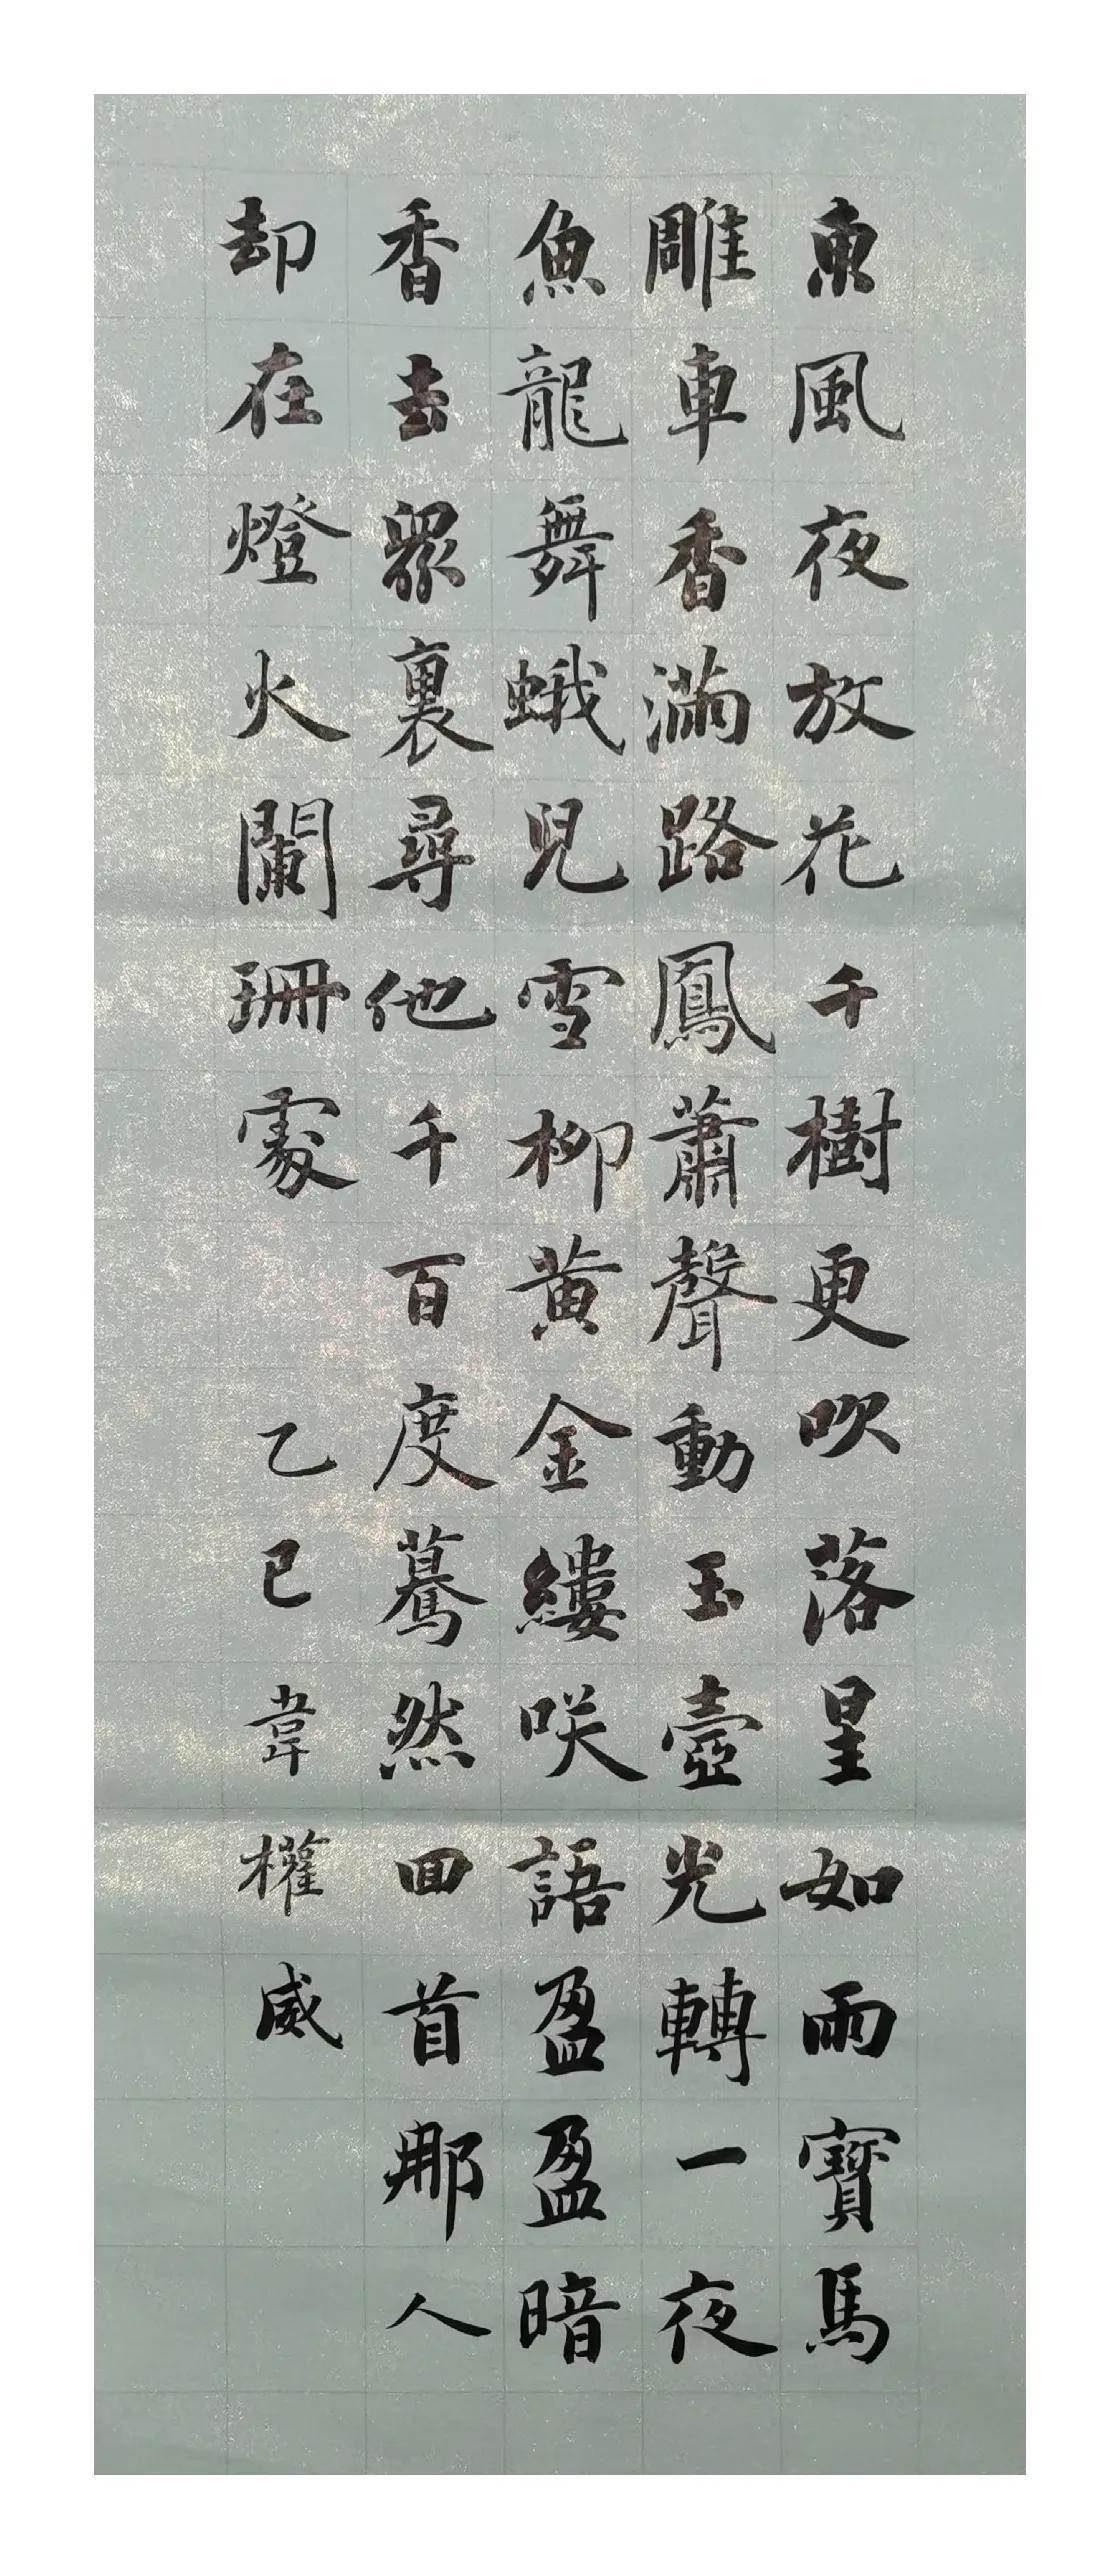 東風夜放花千樹更吹落星如雨寶馬
雕車香滿路鳳蕭聲動玉壺光轉一夜
魚龍舞蛾兒雪柳黃金縷咲語盈盈暗
香去眾裏尋他千百度驀然回首那人
却在燈火闌珊處
乙巳韋權威